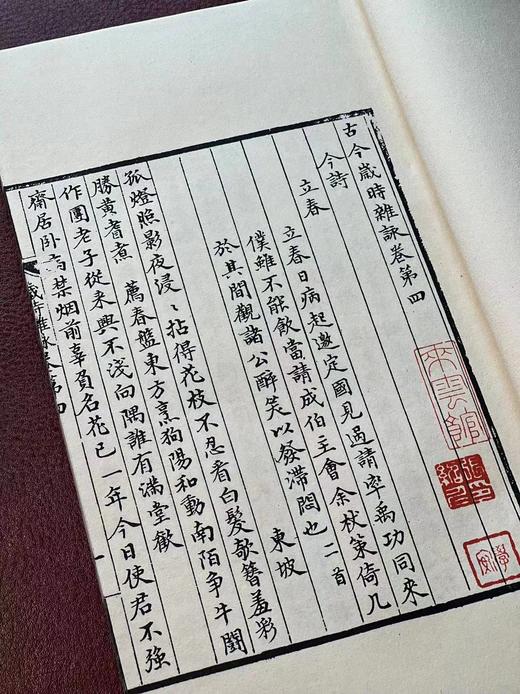 古今歲時雜詠卷第四
今詩
立春
立春日病起邀定國見過請率禹功同來
僕雖不能飲當請成伯主會余杖策倚几
於其間觀諸公醉笑以發滯悶也 二首
東坡
孤燈照影夜浸〻拈得花枝不忍看白髮欹簪羞彩
勝黃耆煮 薦春盤東方烹狗陽和動南陌爭牛鬪
作團老子從來興不淺向隅誰有滿堂歡
齋居卧病禁烟前辜負名花已一年今日使君不強
歲時雜詠卷第四
一